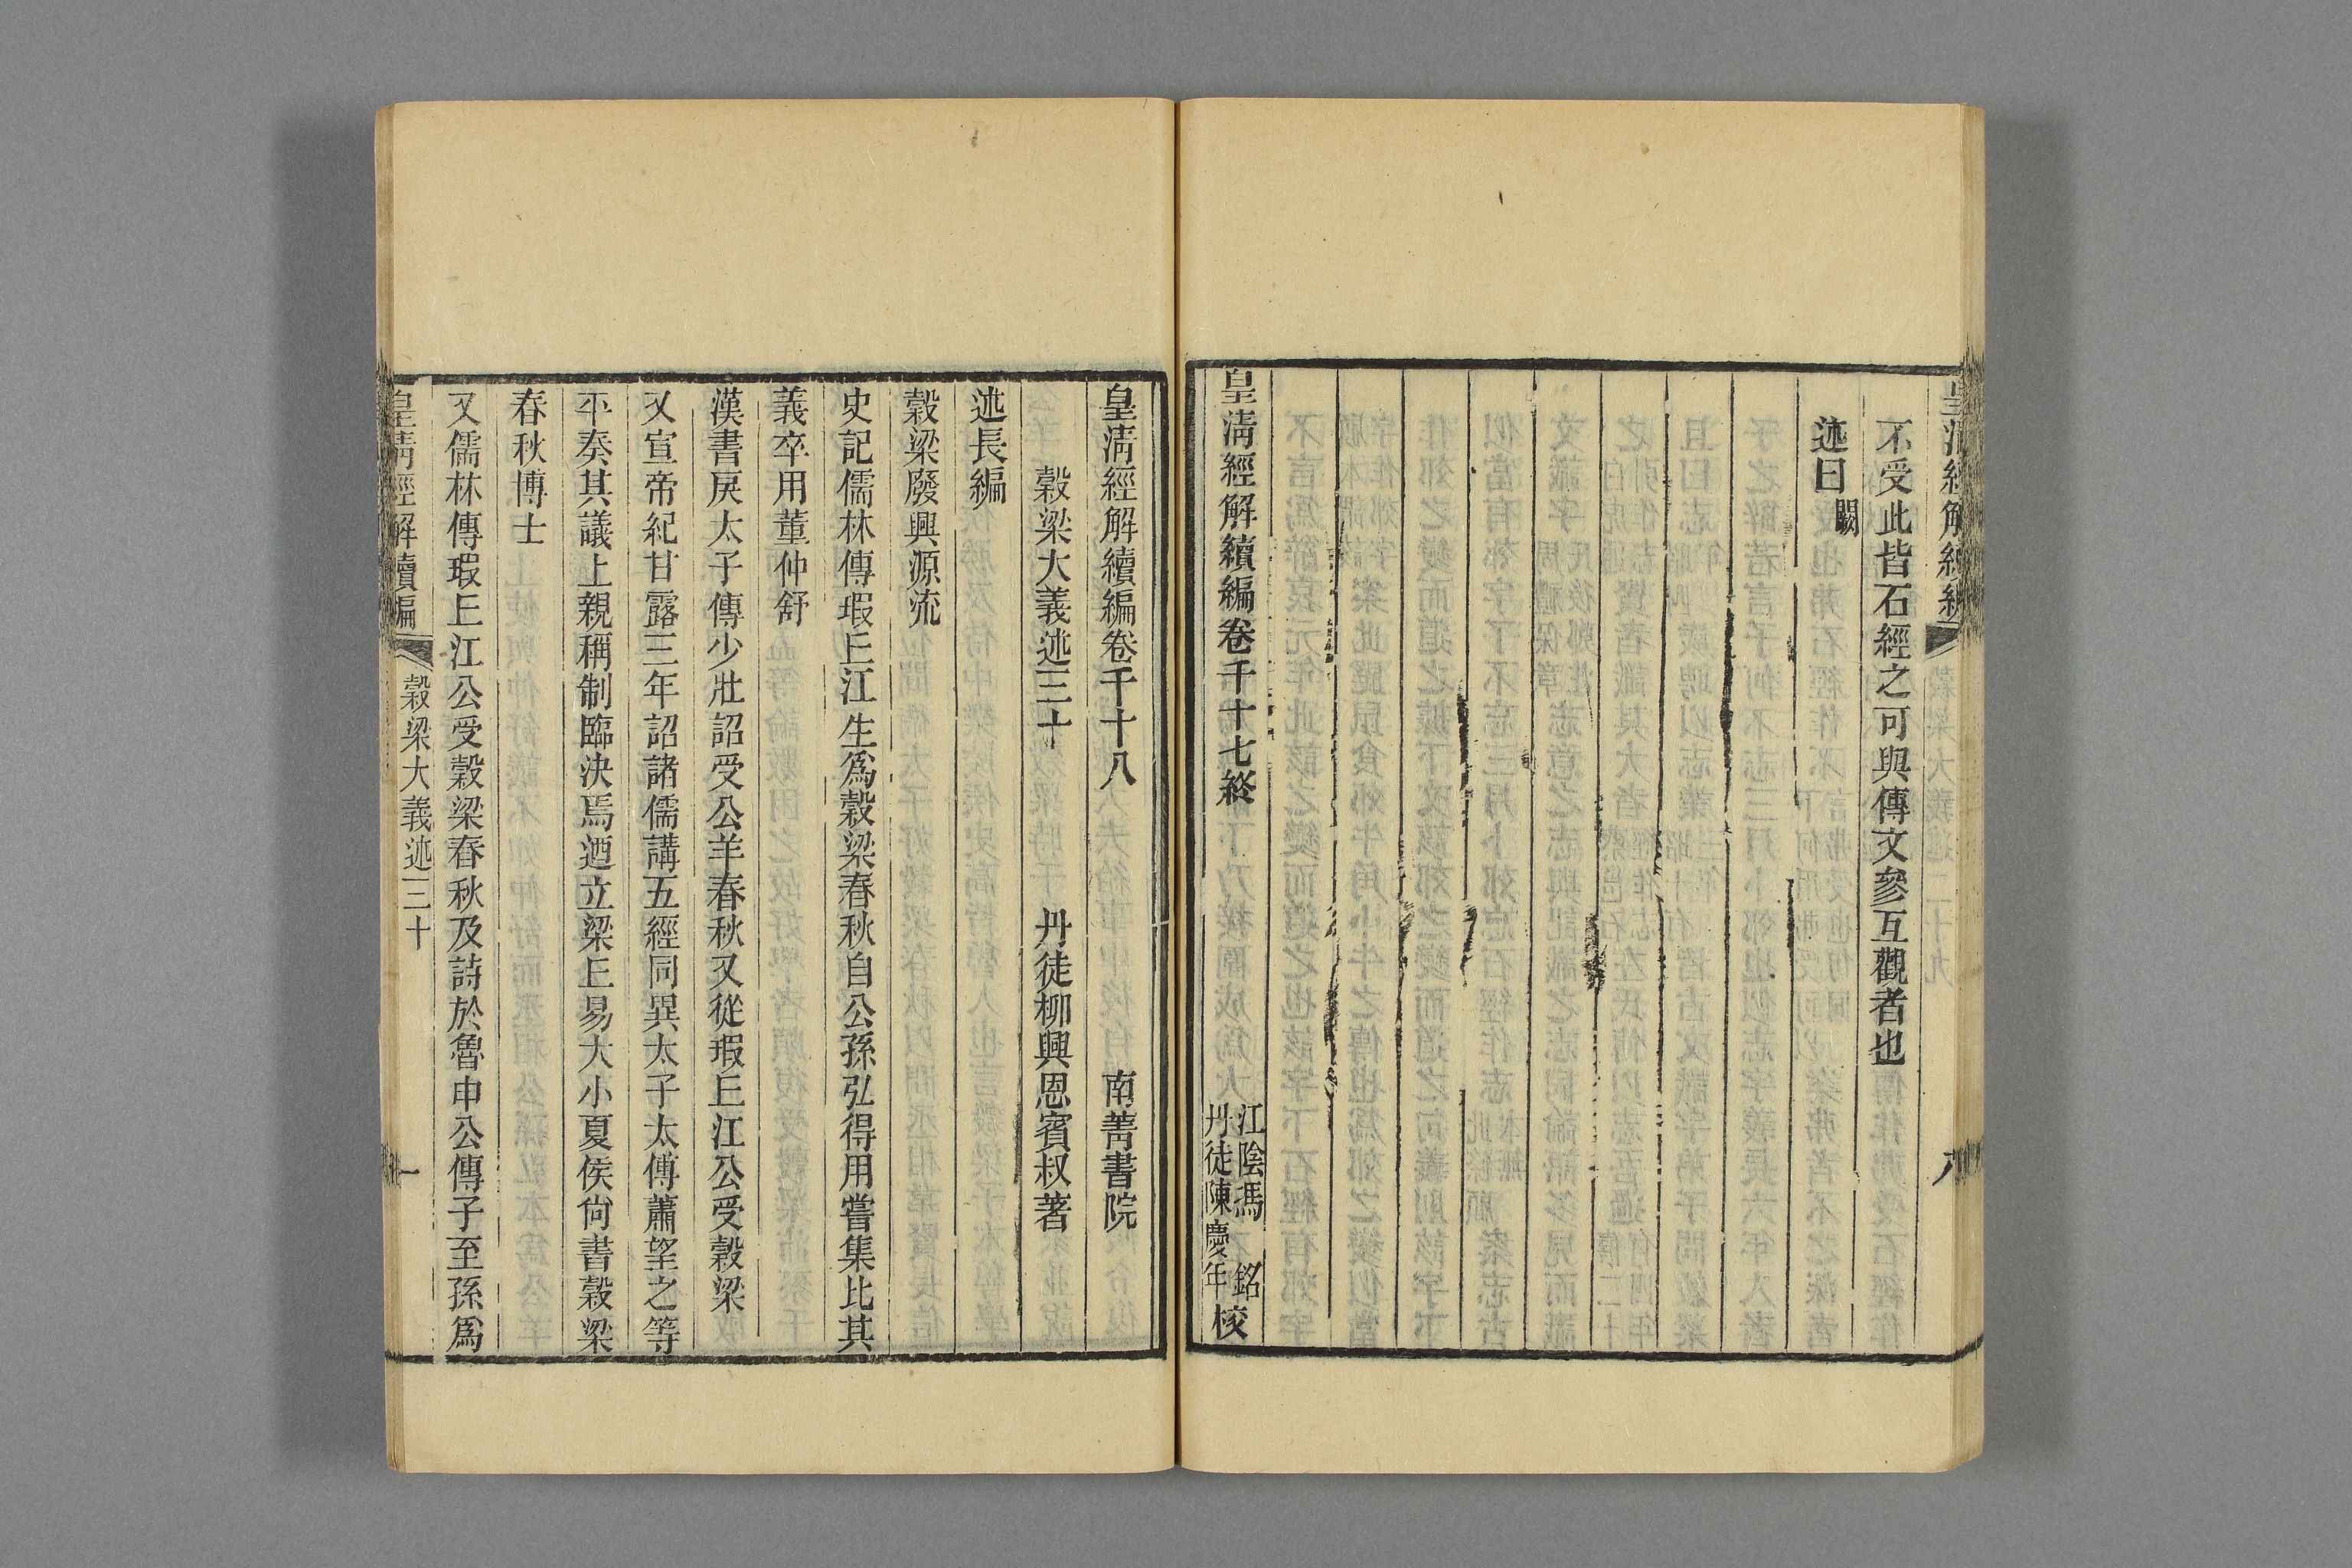 不受此皆石經之可與傳文參互觀者也
述曰闕
皇淸經解續編卷千十七終
江陰馮銘
丹徒陳慶年校
皇淸經解續編卷千十八
南菁書院
穀梁大義述三十
丹徒柳興恩賓叔著
述長編
穀梁廢興源流
史記儒林傳瑕𠀉江生爲穀梁春秋自公孫弘得用嘗集比其
義卒用董仲舒
漢書戾太子傳少壯詔受公羊春秋又從瑕𠀉江公受穀梁
又宣帝紀甘露三年詔諸儒講五經同異太子太傅蕭望之等
平奏其議上親稱制臨決焉迺立梁𠀉易大小夏侯尙書穀梁
春秋博士
又儒林傳瑕𠀉江公受穀梁春秋及詩於魯申公傳子至孫爲
皇淸經解續編
穀梁大義述三十
一